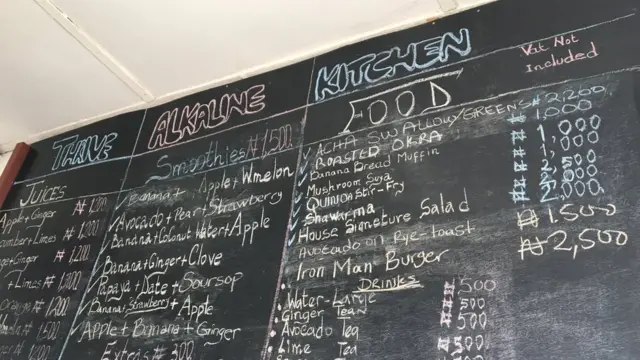 THRIVE ALKALINE KITCHEN
Vat Not
Included
JUICES
Apple + Ginger ₦1,200
+ Limes ₦1,200
+ Ginger ₦1,200
+ Limes
Smoothies ₦1,500
Banana + Apple + W melon
Avocado + Pear + Strawberry
Banana + Coconut Water + Apple
Banana + Ginger + Clove
Papaya + Date + Soursop
Banana + Strawberry + Apple
Apple + Banana + Ginger
Extras ₦300
FOOD
ACHA SWALLOW/GREENS ₦2,200
ROASTED OKRA ₦1,000
Banana Bread Muffin
Mushroom Suya
Quinoa Stir-Fry
Shawarma
House Signature Salad
Avocado on Rye-toast ₦1,500
Iron Man Burger ₦2,500
DRINKS
Water-Large ₦500
Ginger Tea ₦500
Avocado Tea ₦500
Lime Tea ₦500